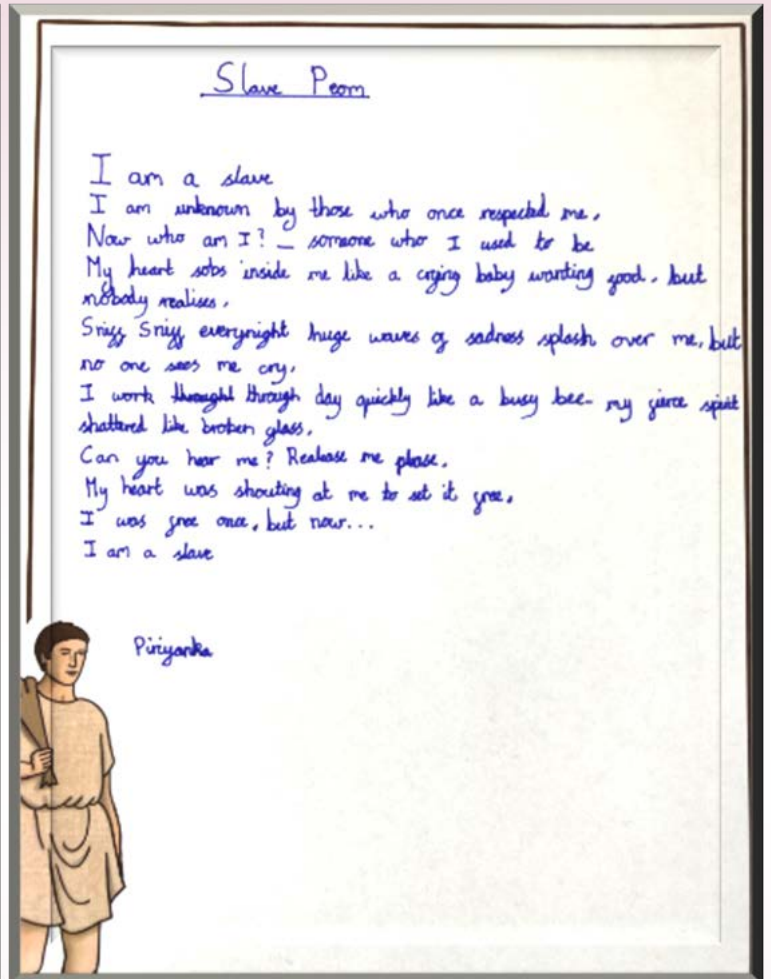 Slave Peom
I am a slave
I am unknown by those who once respected me.
Now who am I? _ someone who I used to be
My heart sobs inside me like a crying baby wanting food. but
nobody realises.
Sniff Sniff everynight huge waves of sadness splash over me, but
no one sees me cry.
I work thraught through day quickly like a busy bee- my fierce spirit
shattered like broken glass.
Can you hear me? Realease me please.
My heart was shouting at me to set it free.
I was free once, but now...
I am a slave
Piriyanka